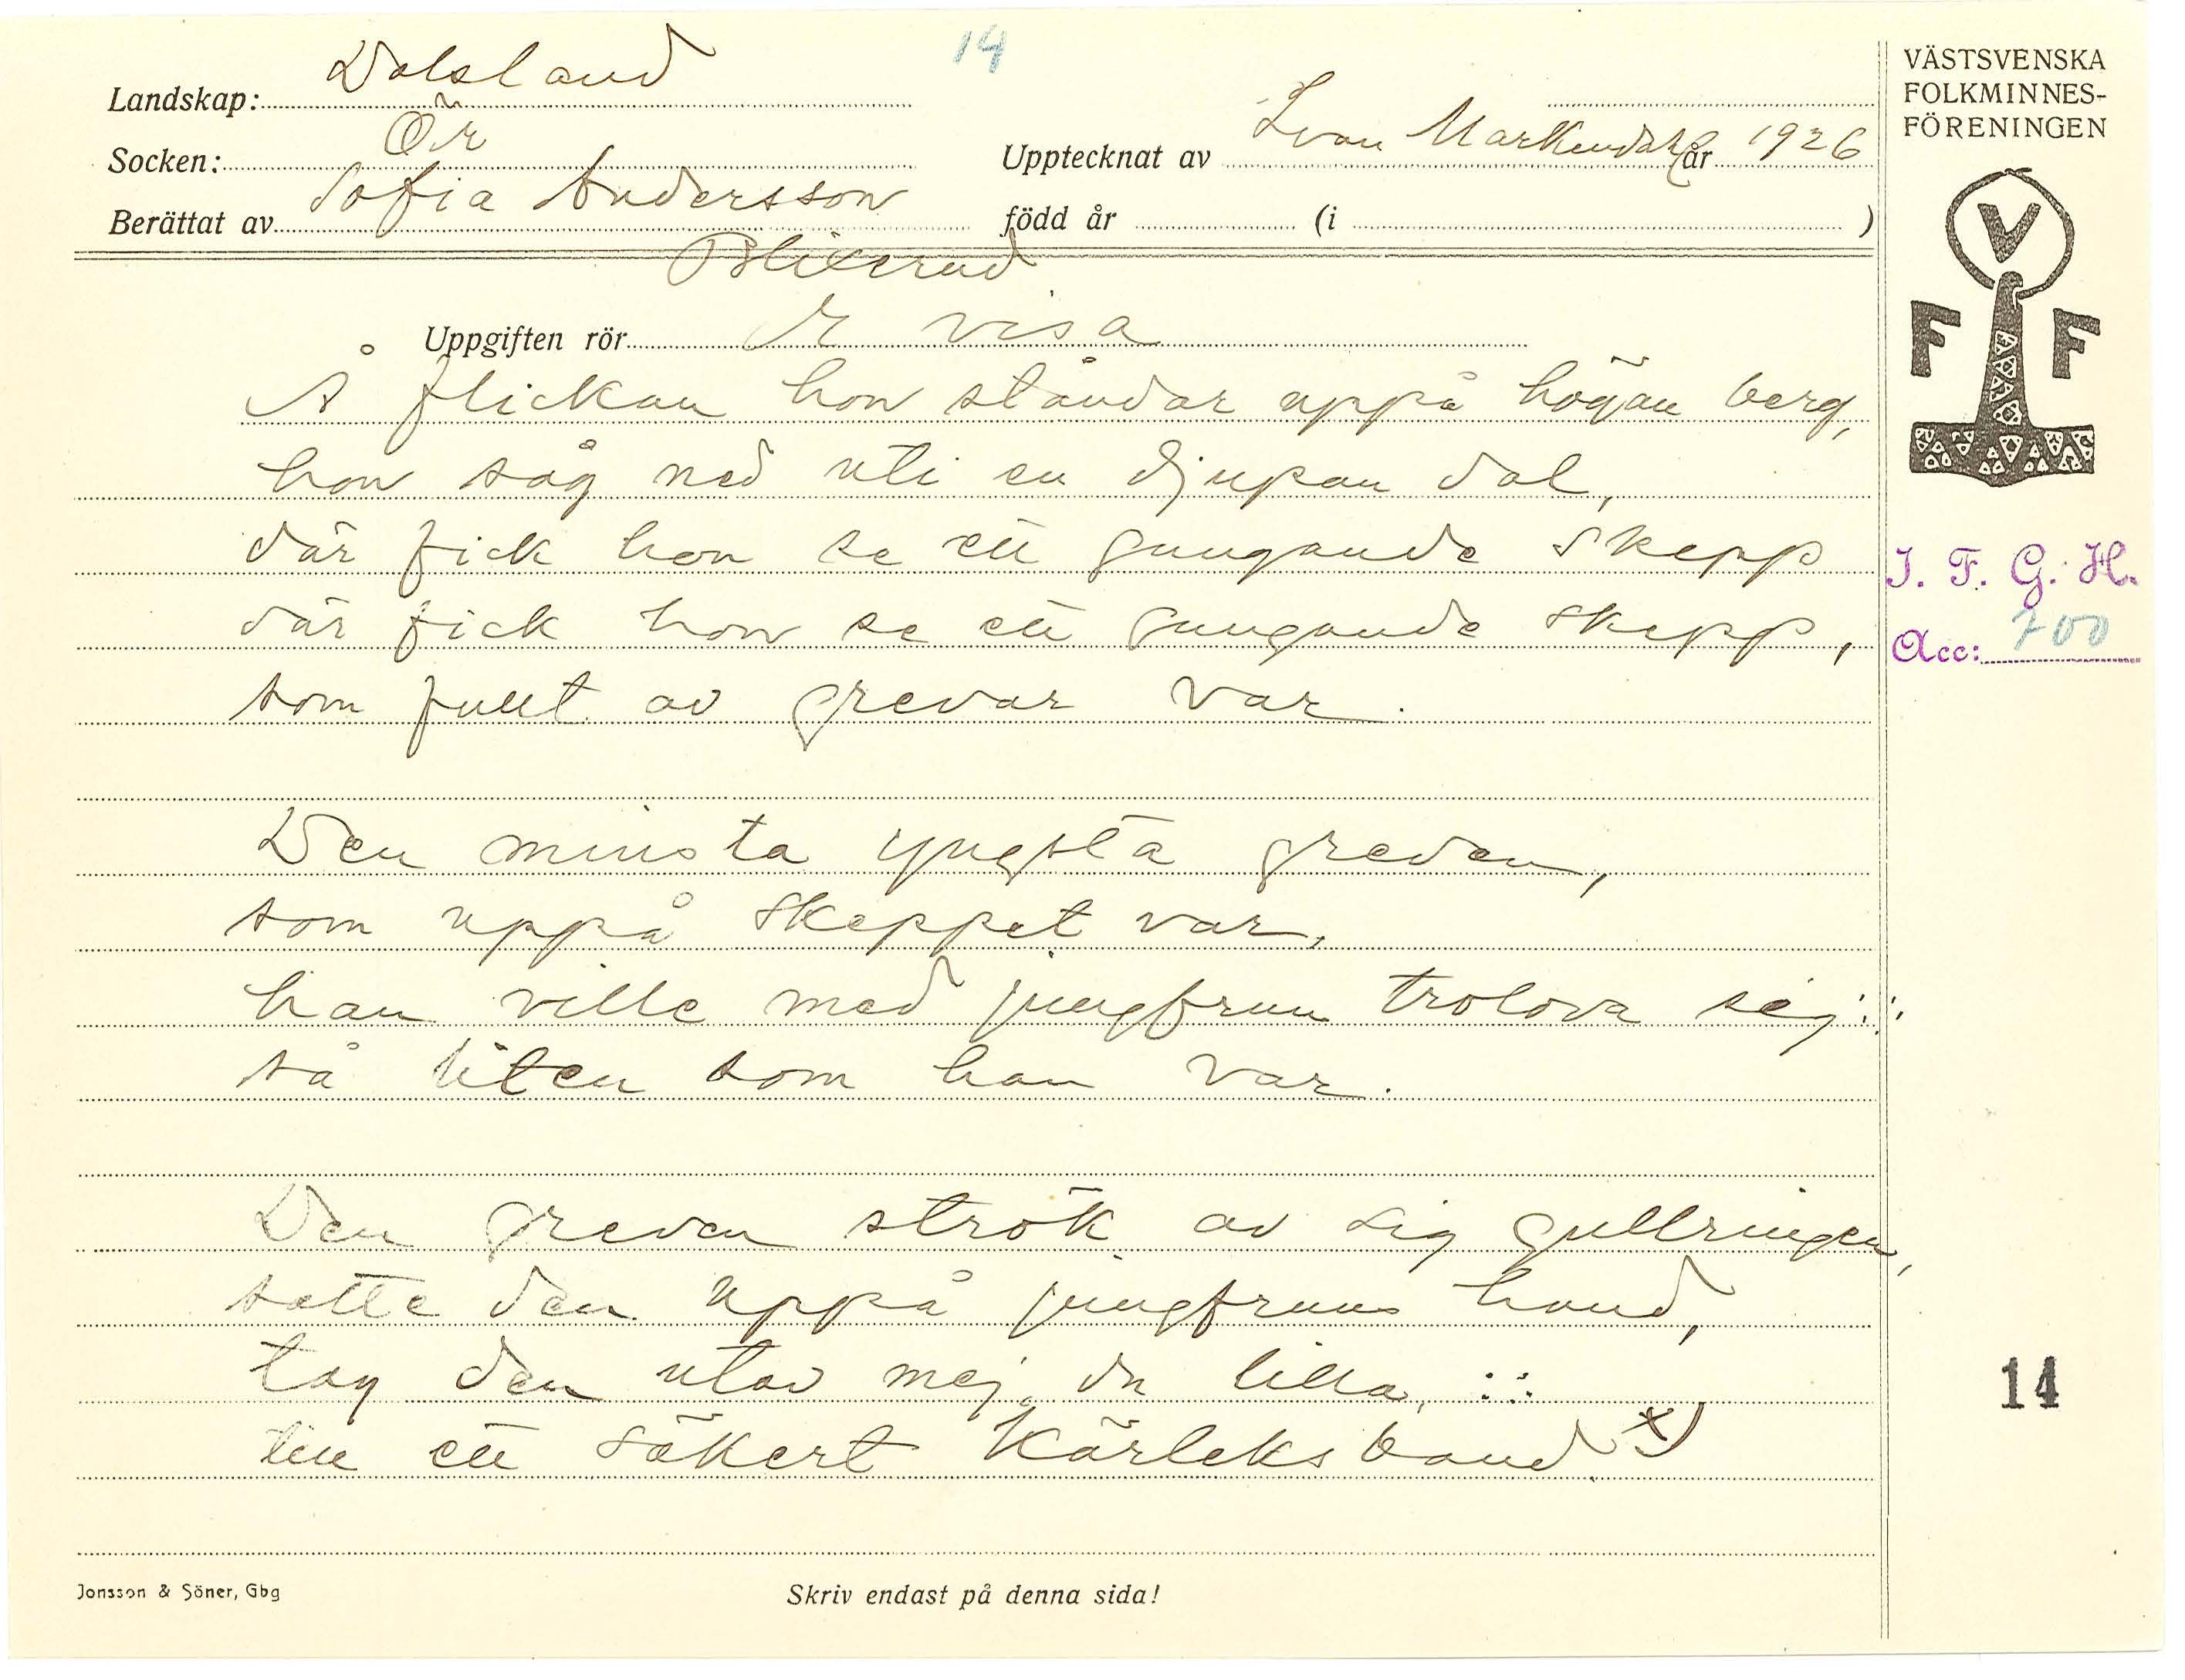 14
Landskap: Dalsland
Socken: Ör
Upptecknat av Ivan Markendahl år 1926
Berättat av Sofia Andersson
född år (i )
Blixerud
Uppgiften rör E visa
Å flickan hon ståndar uppå högan berg,
hon såg ned uti en djupan dal,
där fick hon se ett gungande skepp
där fick hon se ett gungande skepp,
som fullt av grevar var.
Den minsta yngsta greven,
som uppå skeppet var,
han ville med jungfrun trolova sej :;:
så liten som han var.
Den greven strök av sig gullringen,
satte den uppå jungfruns hand,
tag den utav mej, du lilla, :;:
till ett säkert kärleksband. x)
Jonsson & Söner, Gbg
Skriv endast på denna sida!
VÄSTSVENSKA
FOLKMINNES-
FÖRENINGEN
V
F F
I. F. G. H.
Acc: 700
14